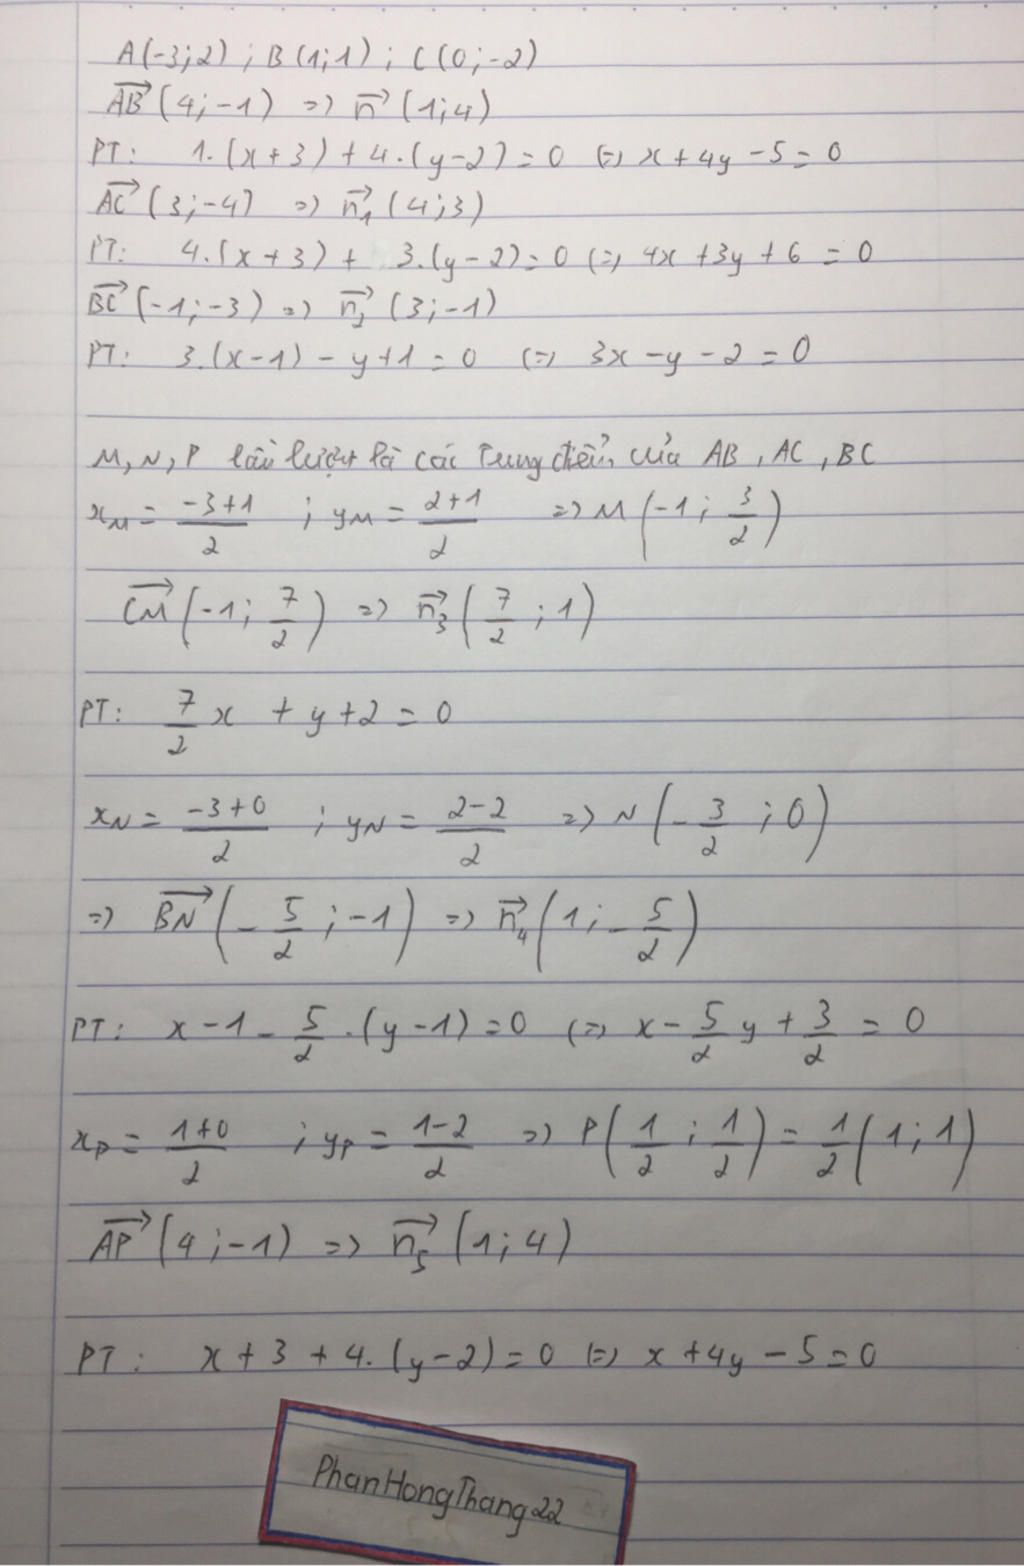 A(-3;2) ; B(1;1) ; C(0;-2)
AB→(4;-1) => n→(1;4)
PT: 1.(x+3)+4.(y-2)=0 (=) x+4y-5=0
AC→(3;-4) => n₁→(4;3)
PT: 4.(x+3) + 3.(y-2)=0 (=) 4x+3y+6=0
BC→(-1;-3) => n₂→(3;-1)
PT: 3.(x-1)-y+1=0 (=) 3x-y-2=0
M,N,P lần lượt là các trung điểm của AB, AC, BC
x_M = (-3+1)/2 ; y_M = (2+1)/2 => M(-1; 3/2)
CM→(-1; 7/2) => n₃→(7/2; 1)
PT: 7/2 x + y+2=0
x_N = (-3+0)/2 ; y_N = (2-2)/2 => N(-3/2; 0)
=> BN→(-5/2; -1) => n₄→(1; -5/2)
PT: x-1-5/2.(y-1)=0 (=) x-5/2 y+3/2=0
x_P = (1+0)/2 ; y_P = (1-2)/2 => P(1/2; 1/2) = 1/2(1;1)
AP→(4;-1) => n₅→(1;4)
PT: x+3+4.(y-2)=0 (=) x+4y-5=0
PhanHongThang22